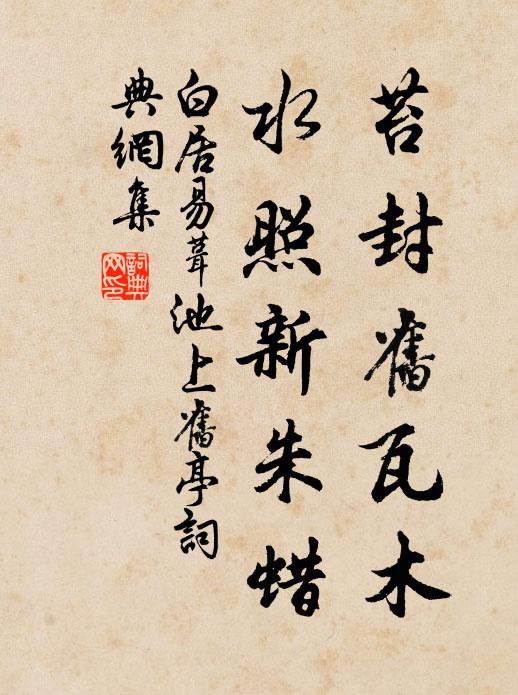 苔封舊瓦木
水照新朱蜡
白居易葺池上舊亭詞
典網集
詞典网印